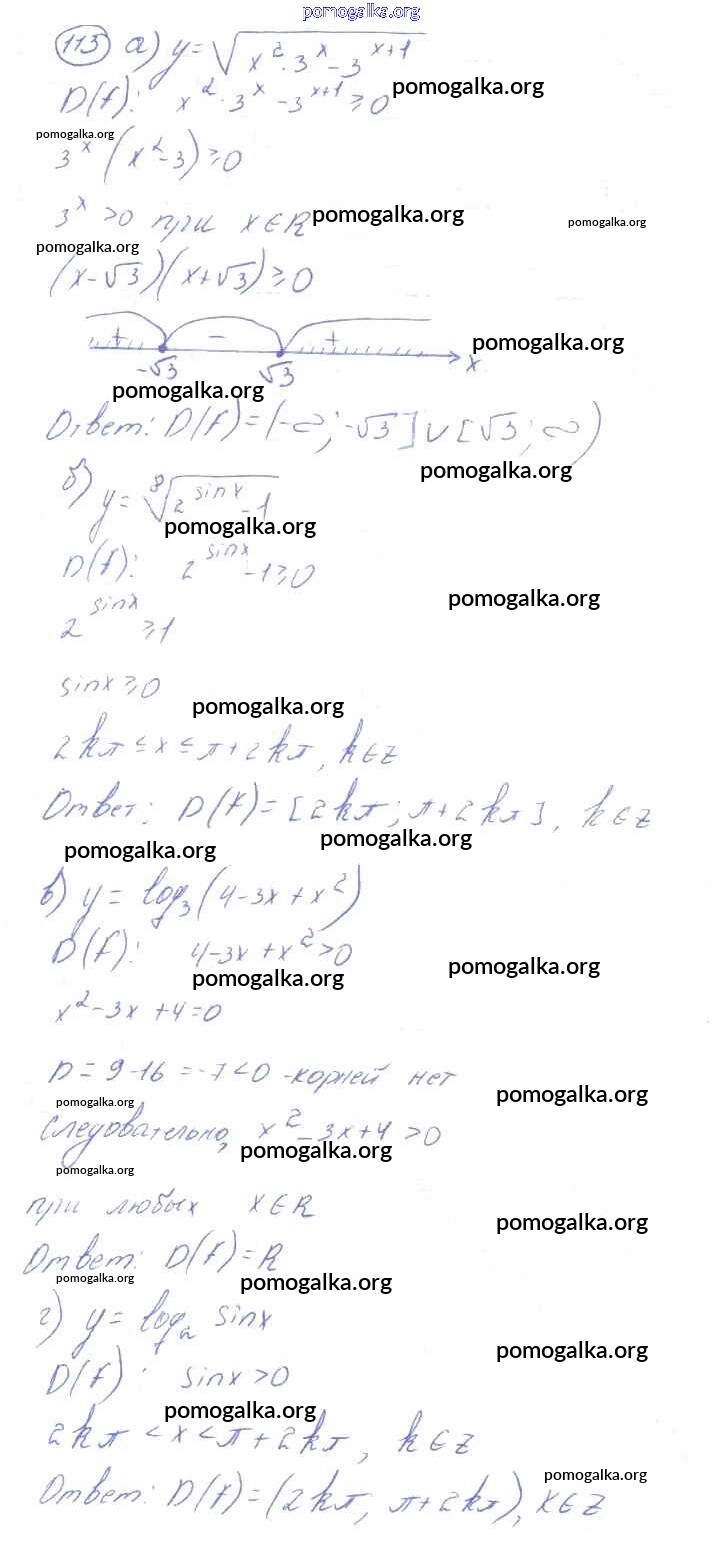 pomogalka.org
113 а) y = √(x² · 3ˣ - 3ˣ⁺¹)
D(f): x² · 3ˣ - 3ˣ⁺¹ ≥ 0 pomogalka.org
pomogalka.org
3ˣ (x² - 3) ≥ 0
3ˣ > 0 при x ∈ R pomogalka.org pomogalka.org
pomogalka.org
(x - √3)(x + √3) ≥ 0
+ - + pomogalka.org
-√3 √3 x
pomogalka.org
Ответ: D(f) = (-∞; -√3] ∪ [√3; ∞)
pomogalka.org
б) y = ⁸√(2^(sinx) - 1)
pomogalka.org
D(f): 2^(sinx) - 1 ≥ 0
pomogalka.org
2^(sinx) ≥ 1
sinx ≥ 0
pomogalka.org
2kπ ≤ x ≤ π + 2kπ, k ∈ Z
Ответ: D(f) = [2kπ; π + 2kπ], k ∈ Z
pomogalka.org pomogalka.org
в) y = log₃(4 - 3x + x²)
D(f): 4 - 3x + x² > 0
pomogalka.org pomogalka.org
x² - 3x + 4 = 0
D = 9 - 16 = -7 < 0 - корней нет
pomogalka.org pomogalka.org
Следовательно, x² - 3x + 4 > 0
pomogalka.org
pomogalka.org
при любых x ∈ R
pomogalka.org
Ответ: D(f) = R
pomogalka.org pomogalka.org
г) y = logₐ sinx
pomogalka.org
D(f): sinx > 0
pomogalka.org
2kπ < x < π + 2kπ, k ∈ Z
pomogalka.org
Ответ: D(f) = (2kπ; π + 2kπ), k ∈ Z